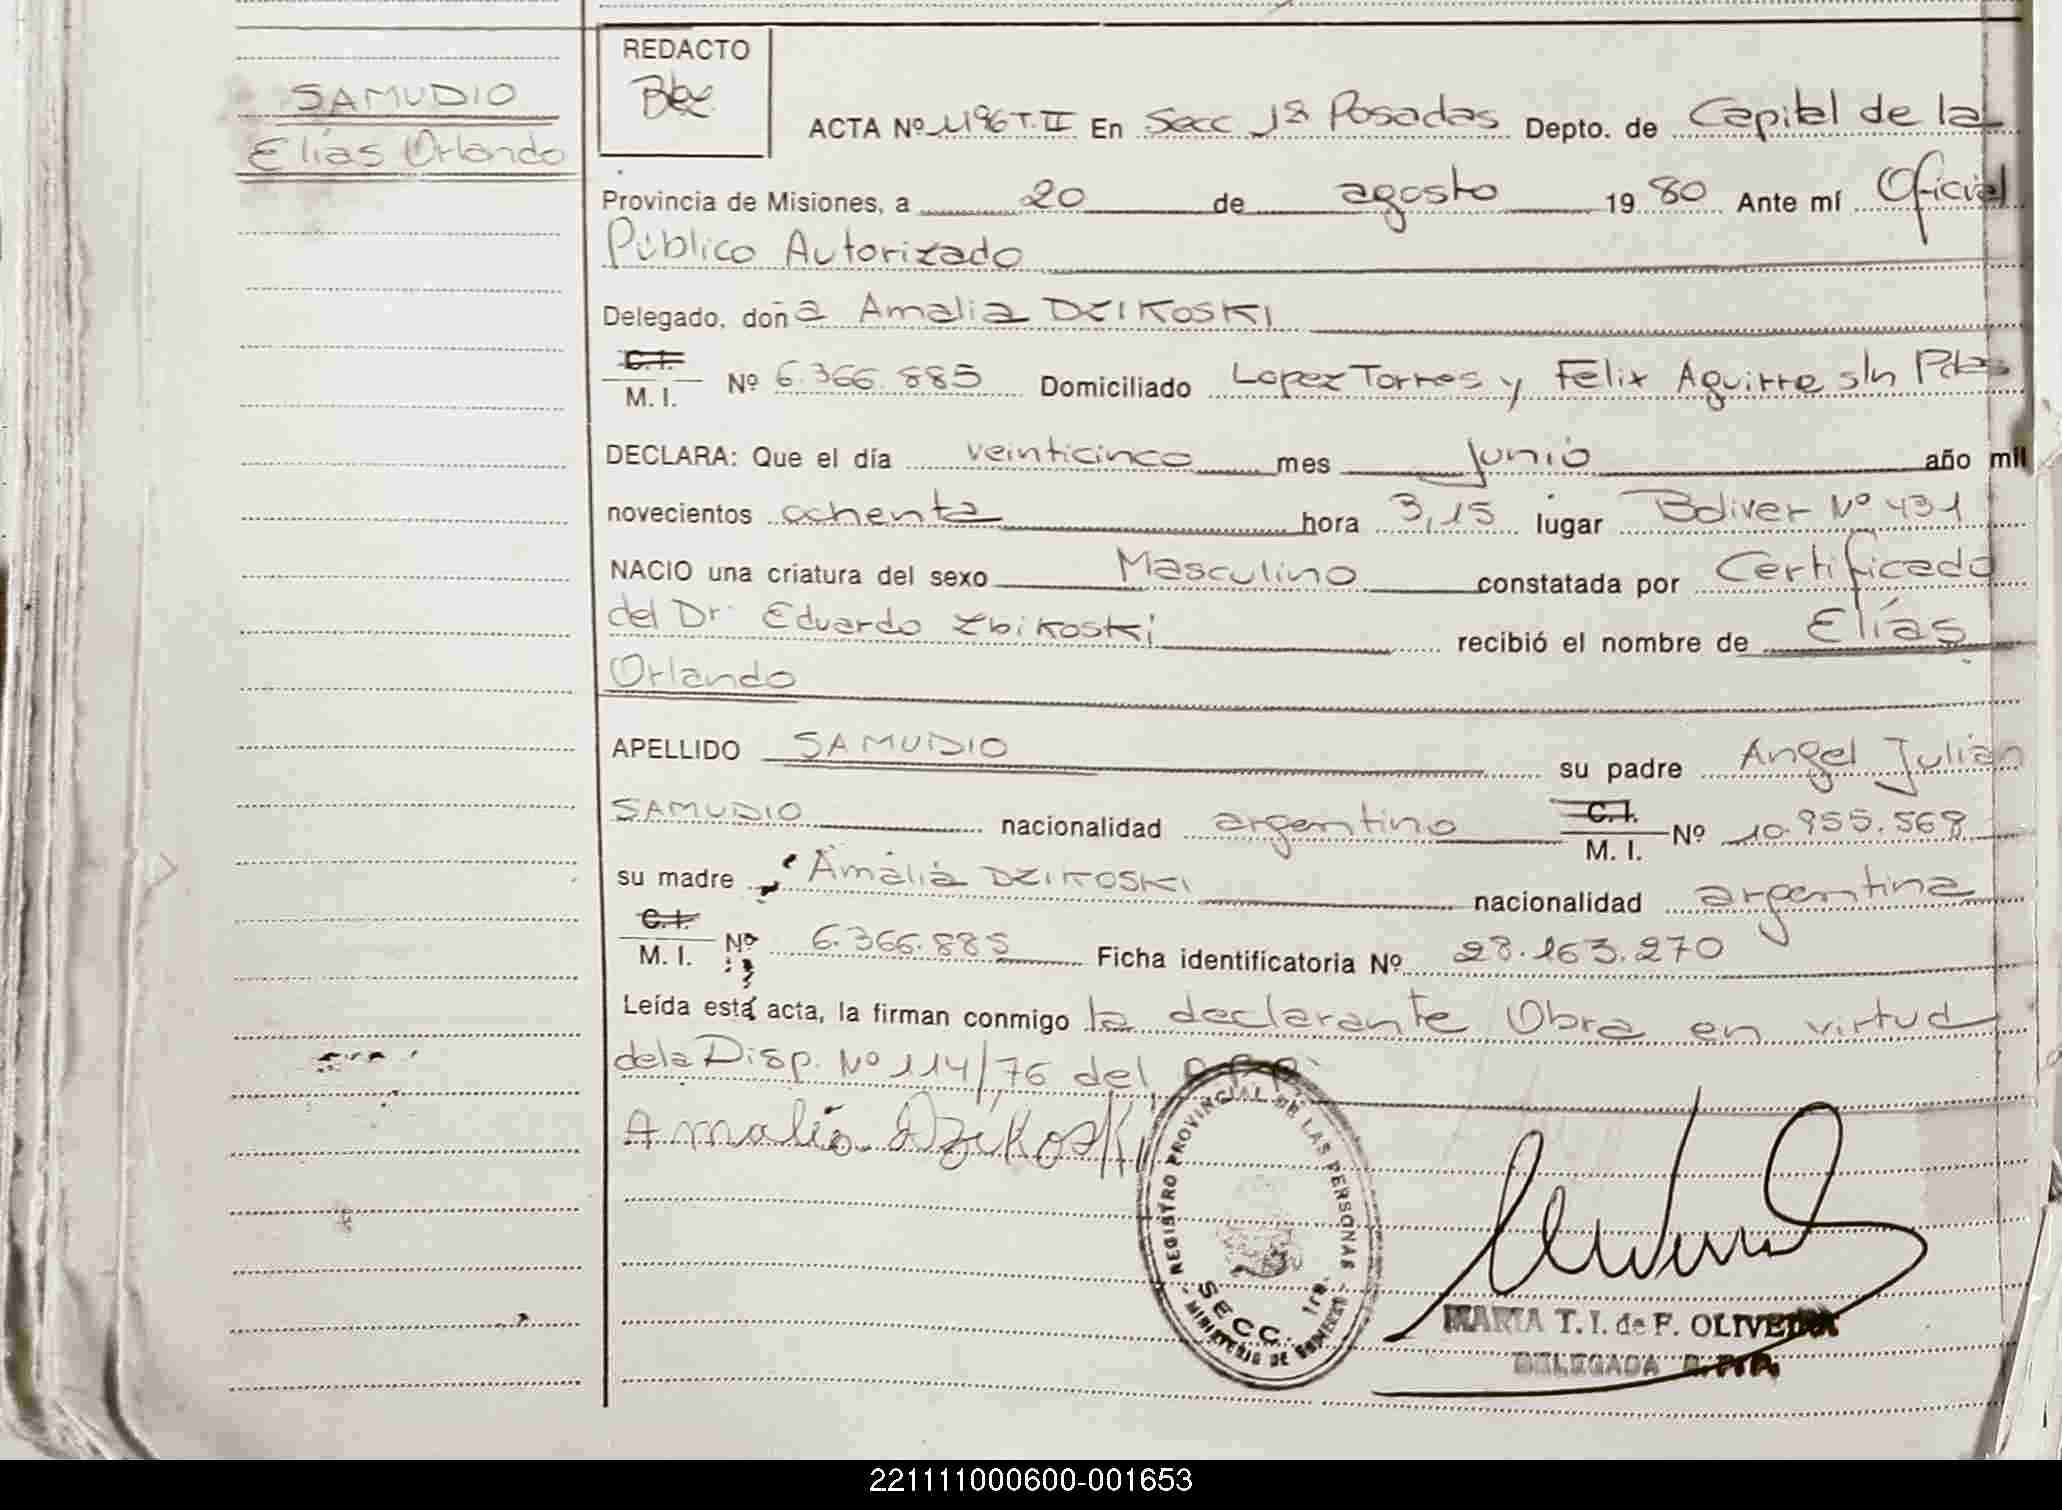 SAMUDIO
Elías Orlando
REDACTO
ACTA Nº 1196 T. II En Secc 1ª Posadas Depto. de Capital de la
Provincia de Misiones, a 20 de agosto 1980 Ante mí Oficial
Público Autorizado
Delegado, doña Amalia DZIKOSKI
C.I.
M. I. Nº 6.366.885 Domiciliado Lopez Torres y Felix Aguirre s/n Pdas
DECLARA: Que el día veinticinco mes junio año mil
novecientos ochenta hora 3,15 lugar Boliver Nº 431
NACIO una criatura del sexo Masculino constatada por Certificado
del Dr. Eduardo Zbikoski recibió el nombre de Elías
Orlando
APELLIDO SAMUDIO su padre Angel Julian
SAMUDIO nacionalidad argentino C.I. M. I. Nº 10.955.568
su madre Amalia DZIKOSKI nacionalidad argentina
C.I.
M. I. Nº 6.366.885 Ficha identificatoria Nº 28.163.270
Leída está acta, la firman conmigo la declarante Obra en virtud
de la Disp. Nº 114/76 del R.P.P.
Amalia Dzikoski
REGISTRO PROVINCIAL DE LAS PERSONAS
SECC. 1ra.
MINISTERIO DE GOBIERNO
MARIA T. I. de F. OLIVEIRA
DELEGADA R.P.P.
221111000600-001653